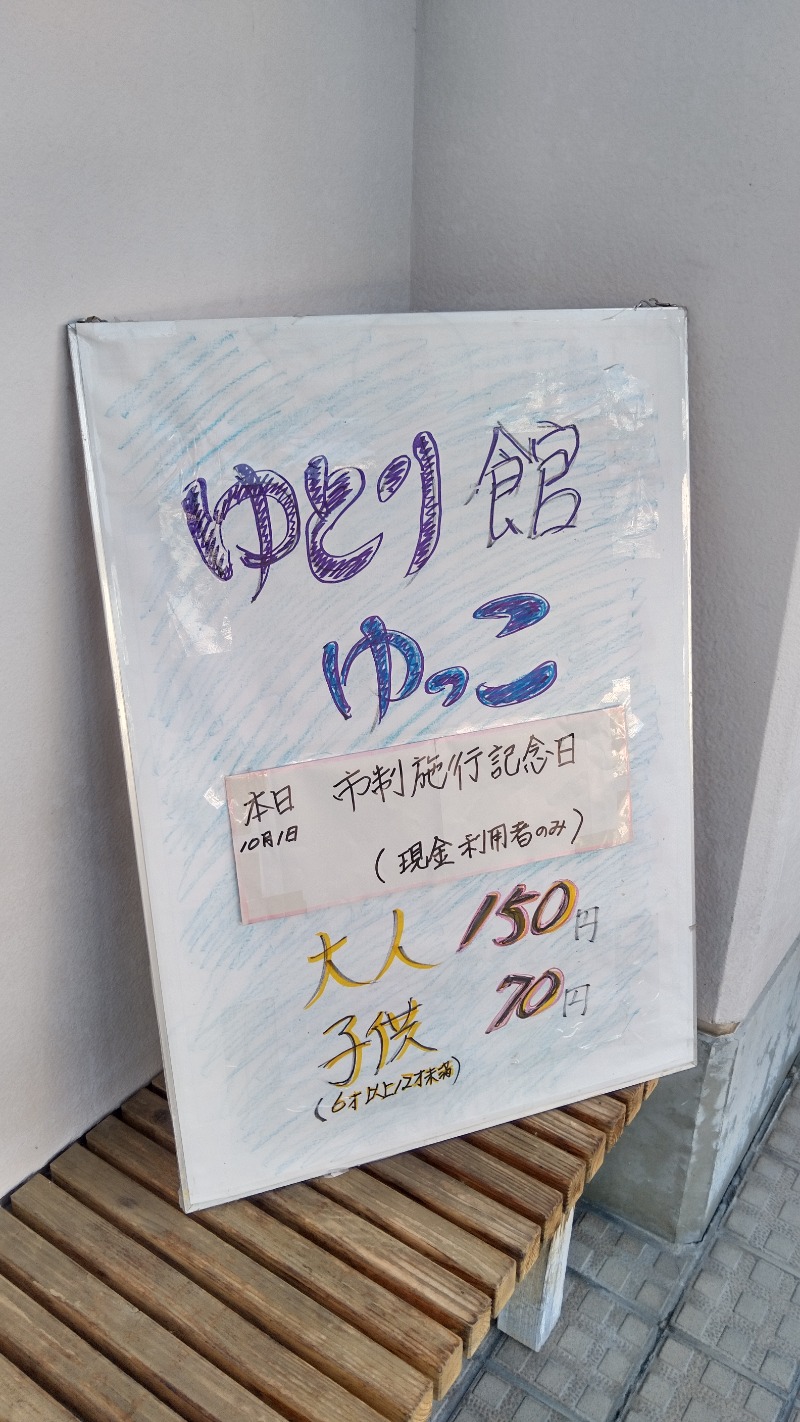 ゆとり館
ゆっこ
本日 市制施行記念日
10月1日
(現金利用者のみ)
大人 150円
子供 70円
(6才以上12才未満)